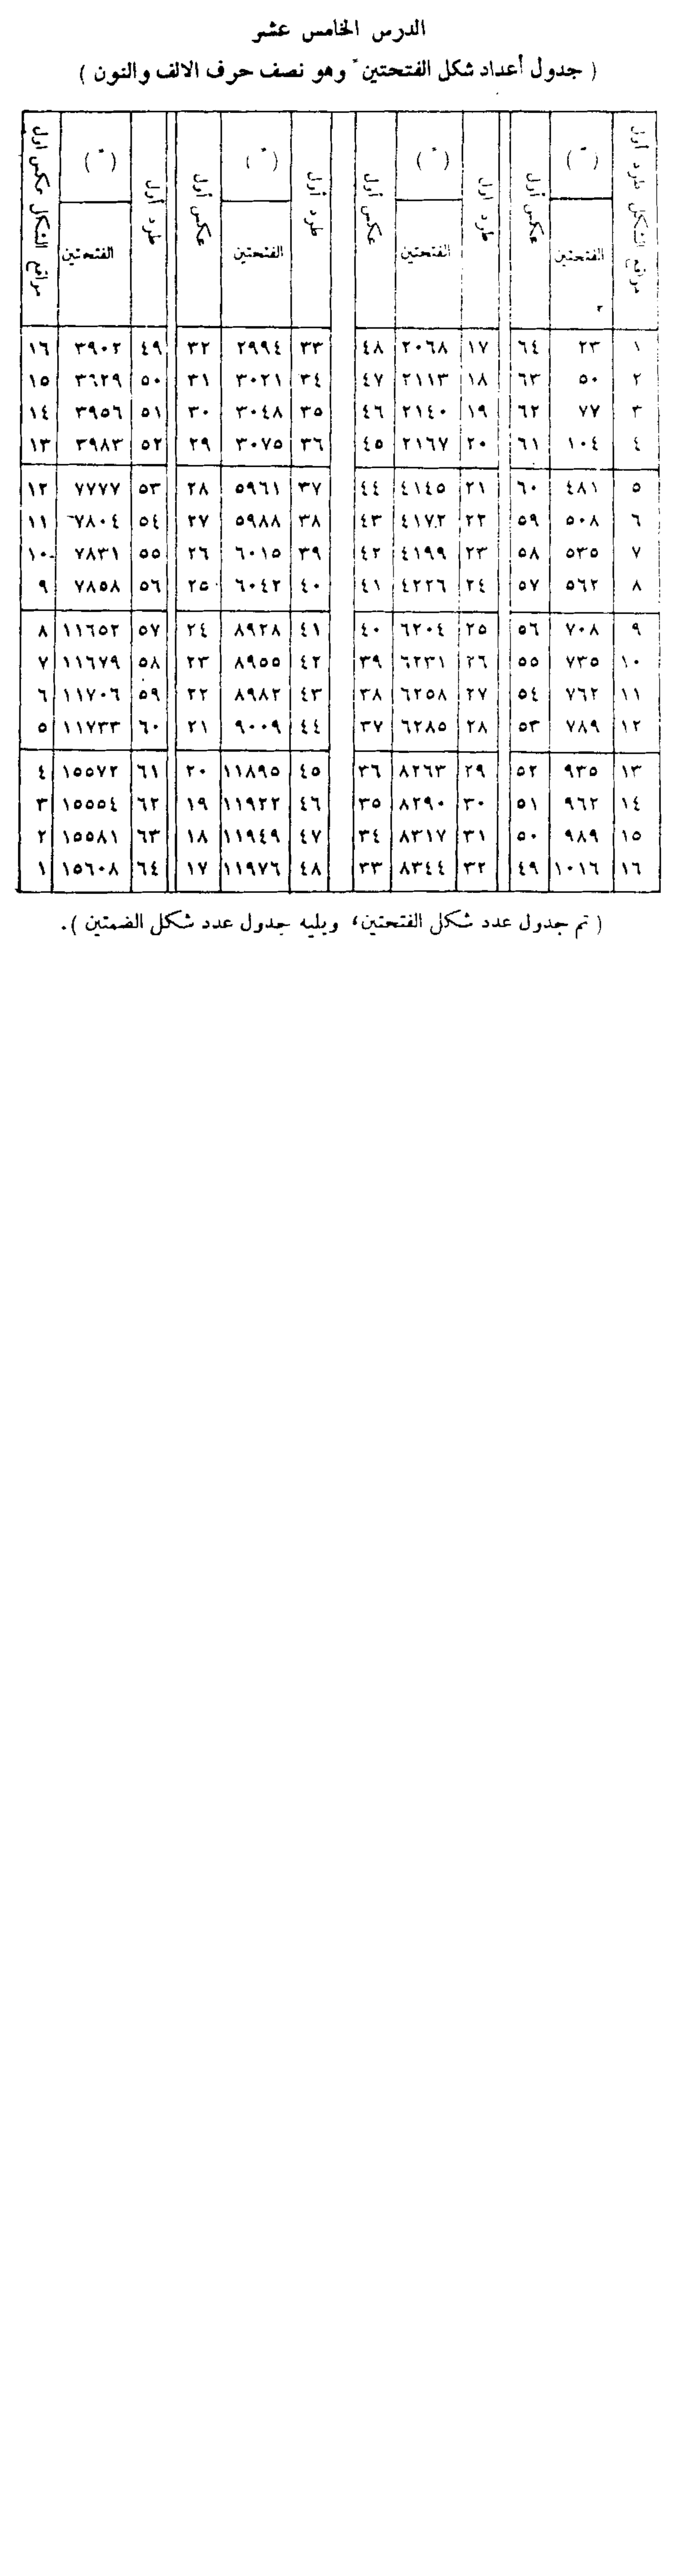 الدرس الخامس عشر
( جدول أعداد شكل الفتحتين ً وهو نصف حرف الالف والنون )
مواقع الشكل طرد أول | ( ً ) الفتحتين | عكس أول | طرد اول | ( ً ) الفتحتين | عكس أول | طرد أول | ( ً ) الفتحتين | عكس أول | طرد أول | ( ً ) الفتحتين | مواقع الشكل عكس اول
١ | ٢٣ | ٦٤ | ١٧ | ٢٠٦٨ | ٤٨ | ٣٣ | ٢٩٩٤ | ٣٢ | ٤٩ | ٣٩٠٢ | ١٦
٢ | ٥٠ | ٦٣ | ١٨ | ٢١١٣ | ٤٧ | ٣٤ | ٣٠٢١ | ٣١ | ٥٠ | ٣٦٢٩ | ١٥
٣ | ٧٧ | ٦٢ | ١٩ | ٢١٤٠ | ٤٦ | ٣٥ | ٣٠٤٨ | ٣٠ | ٥١ | ٣٩٥٦ | ١٤
٤ | ١٠٤ | ٦١ | ٢٠ | ٢١٦٧ | ٤٥ | ٣٦ | ٣٠٧٥ | ٢٩ | ٥٢ | ٣٩٨٣ | ١٣
٥ | ٤٨١ | ٦٠ | ٢١ | ٤١٤٥ | ٤٤ | ٣٧ | ٥٩٦١ | ٢٨ | ٥٣ | ٧٧٧٧ | ١٢
٦ | ٥٠٨ | ٥٩ | ٢٢ | ٤١٧٢ | ٤٣ | ٣٨ | ٥٩٨٨ | ٢٧ | ٥٤ | ٧٨٠٤ | ١١
٧ | ٥٣٥ | ٥٨ | ٢٣ | ٤١٩٩ | ٤٢ | ٣٩ | ٦٠١٥ | ٢٦ | ٥٥ | ٧٨٣١ | ١٠
٨ | ٥٦٢ | ٥٧ | ٢٤ | ٤٢٢٦ | ٤١ | ٤٠ | ٦٠٤٢ | ٢٥ | ٥٦ | ٧٨٥٨ | ٩
٩ | ٧٠٨ | ٥٦ | ٢٥ | ٦٢٠٤ | ٤٠ | ٤١ | ٨٩٢٨ | ٢٤ | ٥٧ | ١١٦٥٢ | ٨
١٠ | ٧٣٥ | ٥٥ | ٢٦ | ٦٢٣١ | ٣٩ | ٤٢ | ٨٩٥٥ | ٢٣ | ٥٨ | ١١٦٧٩ | ٧
١١ | ٧٦٢ | ٥٤ | ٢٧ | ٦٢٥٨ | ٣٨ | ٤٣ | ٨٩٨٢ | ٢٢ | ٥٩ | ١١٧٠٦ | ٦
١٢ | ٧٨٩ | ٥٣ | ٢٨ | ٦٢٨٥ | ٣٧ | ٤٤ | ٩٠٠٩ | ٢١ | ٦٠ | ١١٧٣٣ | ٥
١٣ | ٩٣٥ | ٥٢ | ٢٩ | ٨٢٦٣ | ٣٦ | ٤٥ | ١١٨٩٥ | ٢٠ | ٦١ | ١٥٥٧٢ | ٤
١٤ | ٩٦٢ | ٥١ | ٣٠ | ٨٢٩٠ | ٣٥ | ٤٦ | ١١٩٢٢ | ١٩ | ٦٢ | ١٥٥٥٤ | ٣
١٥ | ٩٨٩ | ٥٠ | ٣١ | ٨٣١٧ | ٣٤ | ٤٧ | ١١٩٤٩ | ١٨ | ٦٣ | ١٥٥٨١ | ٢
١٦ | ١٠١٦ | ٤٩ | ٣٢ | ٨٣٤٤ | ٣٣ | ٤٨ | ١١٩٧٦ | ١٧ | ٦٤ | ١٥٦٠٨ | ١
( تم جدول عدد شكل الفتحتين، ويليه جدول عدد شكل الضمتين ).